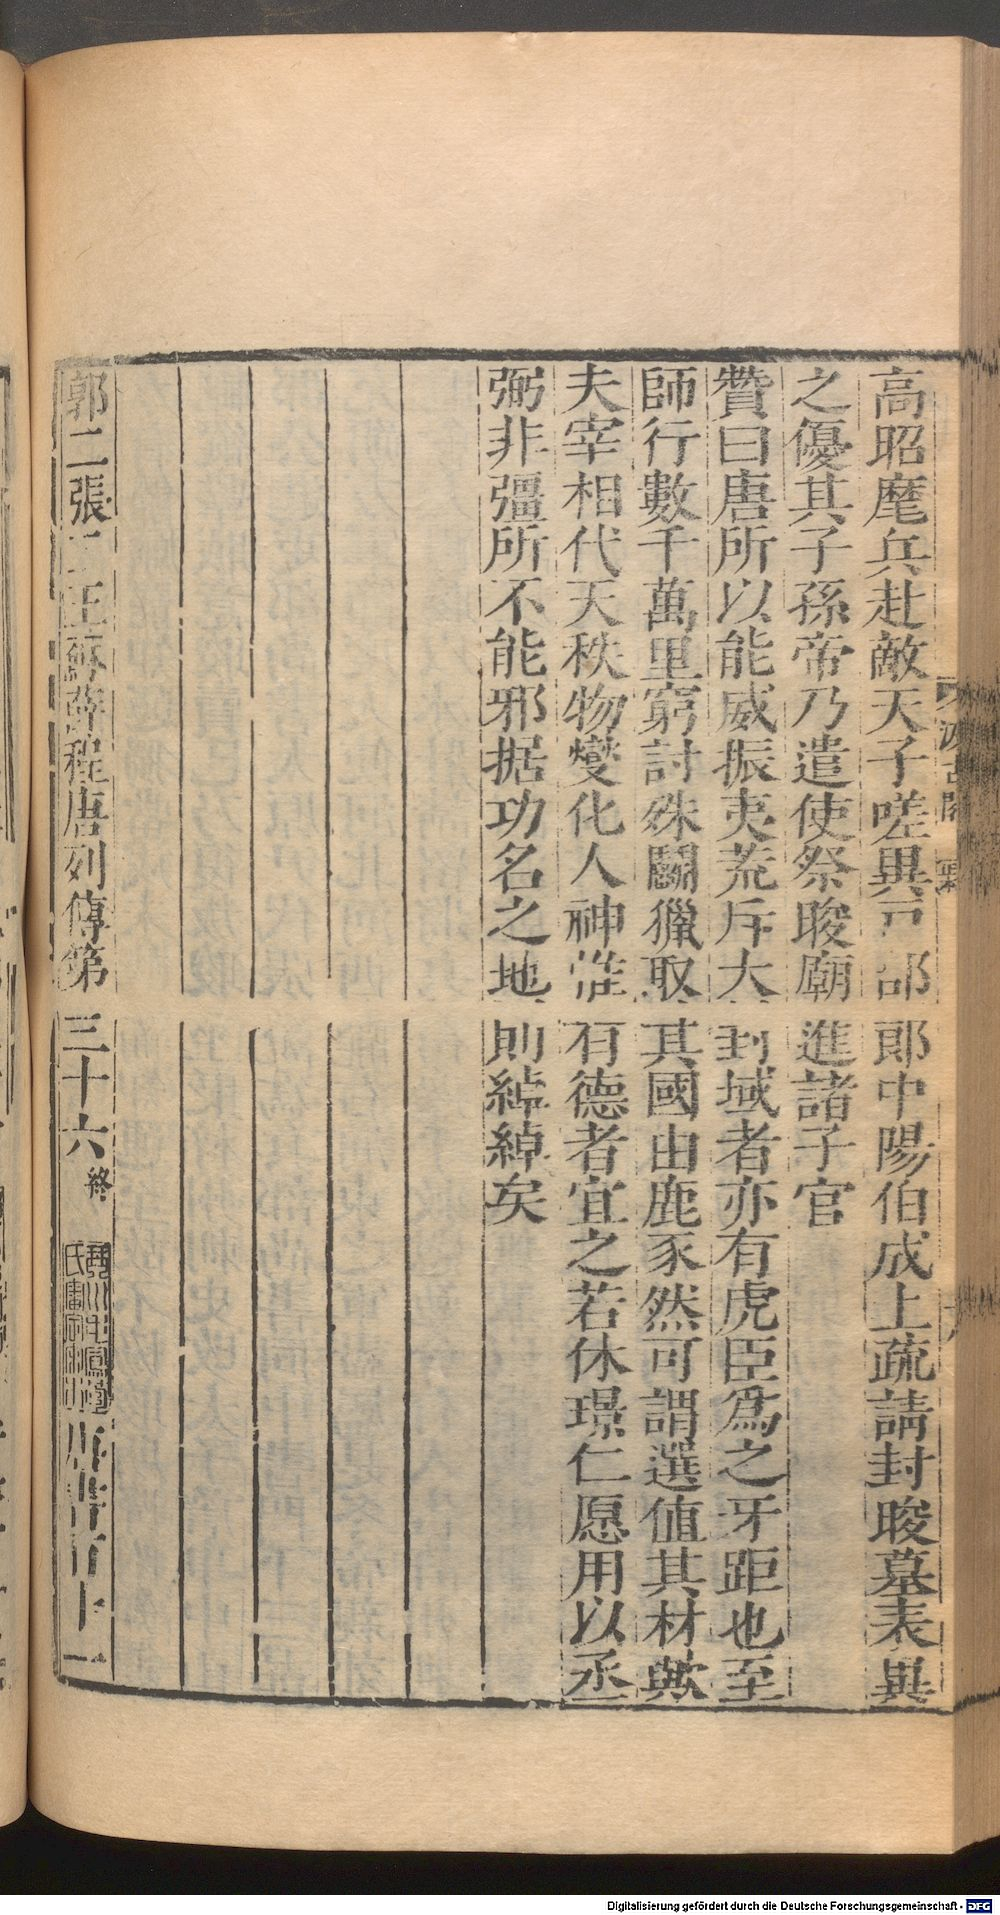 汲古閣
高昭麾兵赴敵天子嗟異戸部郎中陽伯成上疏請封晙墓表異
之優其子孫帝乃遣使祭晙廟進諸子官
贊曰唐所以能威振夷荒斥大封域者亦有虎臣爲之牙距也至
師行數千萬里窮討殊鬬獵取其國由鹿豕然可謂選值其材歟
夫宰相代天秩物燮化人神惟有德者宜之若休璟仁愿用以丞
弼非彊所不能邪据功名之地則綽綽矣
郭二張三王蘇薛程唐列傳第三十六 終 琴川毛鳳苞氏審定宋本 唐書百十一
Digitalisierung gefördert durch die Deutsche Forschungsgemeinschaft - DFG